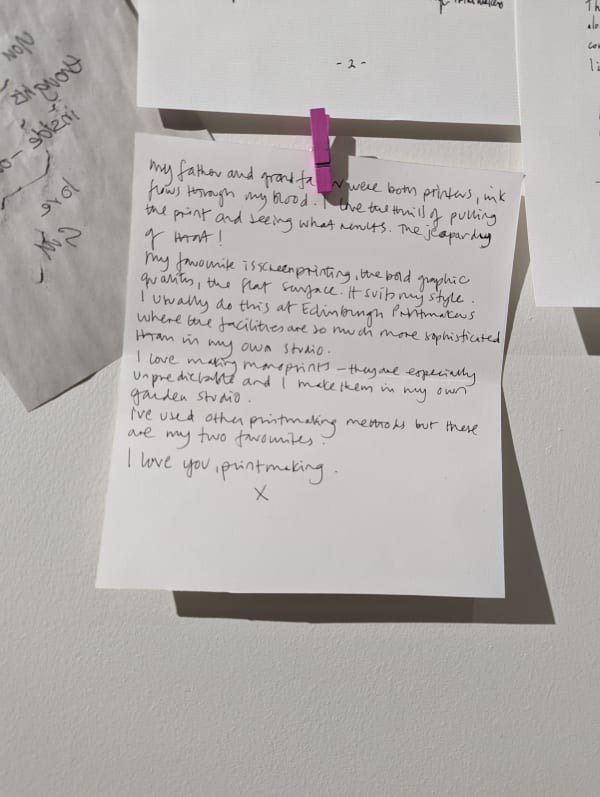 - 2 -
my father and grandfa r were both printers, ink
flows through my blood. I love the thrill of pulling
the print and seeing what results. The jeopardy
of that!
My favourite is screenprinting, the bold graphic
quality, the flat surface. It suits my style.
I usually do this at Edinburgh Printmakers
where the facilities are so much more sophisticated
than in my own studio.
I love making monoprints – they are especially
unpredictable and I make them in my own
garden studio.
I've used other printmaking methods but these
are my two favourites.
I love you, printmaking.
X
Th
alo
con
li
inside
love